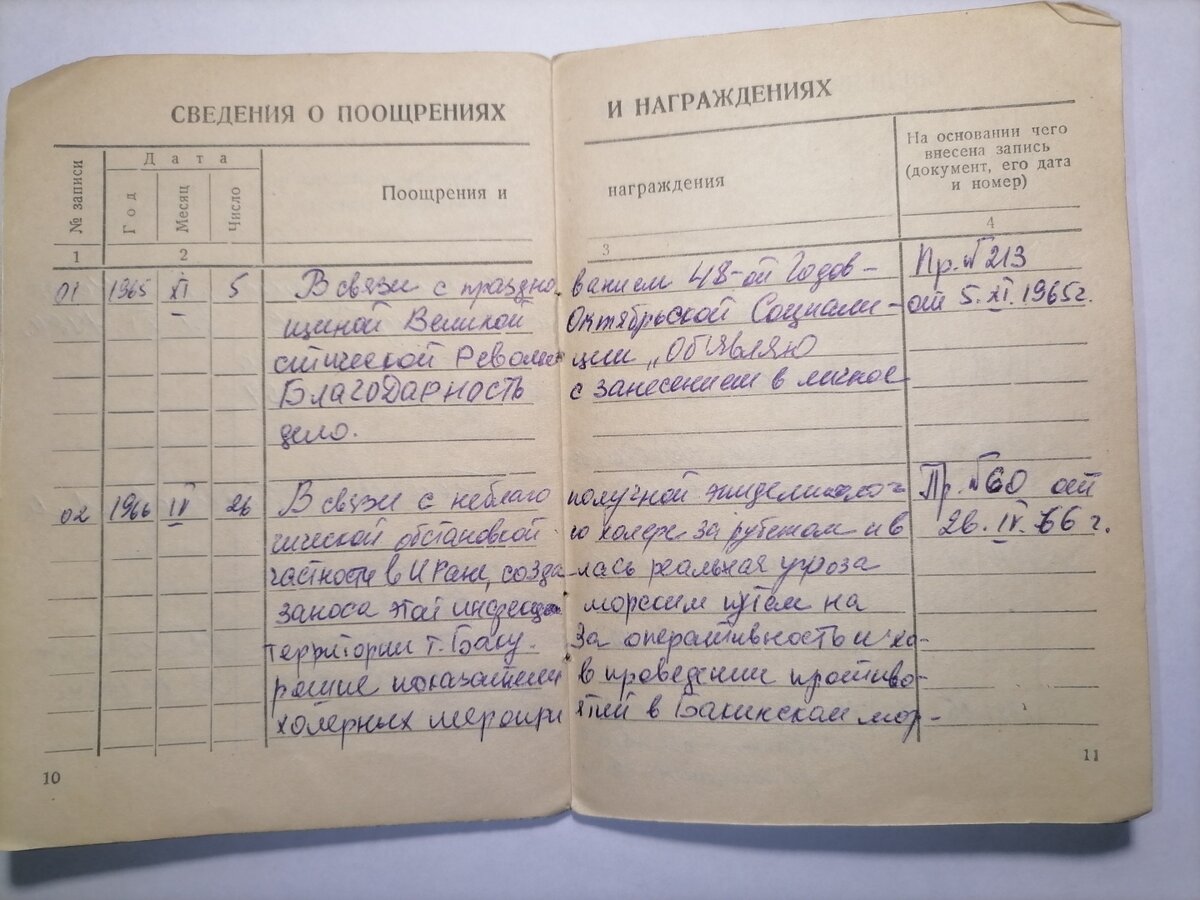 СВЕДЕНИЯ О ПООЩРЕНИЯХ И НАГРАЖДЕНИЯХ
№ записи
Дата
Год
Месяц
Число
Поощрения и награждения
На основании чего
внесена запись
(документ, его дата
и номер)
1 2 3 4
01 1965 XI 5 В связи с праздно ванием 48-ой Годов- Пр. №213
щиной Великой Октябрьской Социали- от 5.XI.1965г.
стической Револю ции „Объявляю
Благодарность с занесением в личное
дело.
02 1966 IV 26 В связи с неблаго получной эпидемиолог Пр. №60 от
ической обстановкой по холере за рубежом и в 26.IV.66 г.
частности в Иране, созда-лась реальная угроза
заноса этой инфекции морским путем на
территории г. Баку. За оперативность и хо-
рошие показатели в проведении противо-
холерных меропри ятий в Бакинском мор-
10
11